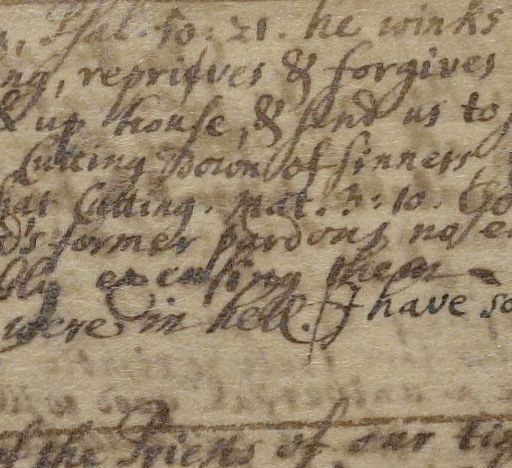 Psal. 50: 21. he winks
ing, reprieves & forgives
& up house, & send us to
Cutting Down of sinners,
that Cutting. Mat. 3: 10.
former pardons no
excusing them
were in hell. I have so
of the Tricks of our